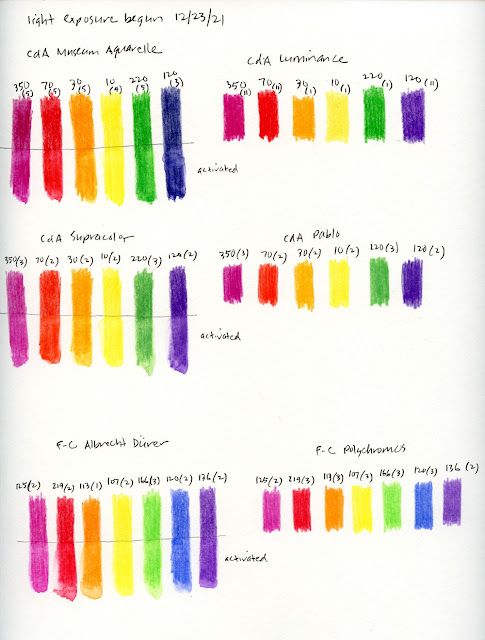 light exposure begun 12/23/21
CdA Museum Aquarelle
350 70 30 10 220 120
(5) (5) (5) (5) (5) (3)
activated
CdA Luminance
350(11) 70(11) 30(1) 10(1) 220(1) 120(11)
CdA Supracolor
350(3) 70(2) 30(2) 10(2) 220(3) 120(2)
activated
CdA Pablo
350(3) 70(2) 30(2) 10(2) 220(3) 120(2)
F-C Albrecht Dürer
125(2) 219(2) 113(1) 107(2) 166(3) 120(2) 136(2)
activated
F-C Polychromos
125(2) 219(3) 113(3) 107(2) 166(3) 120(3) 136(2)